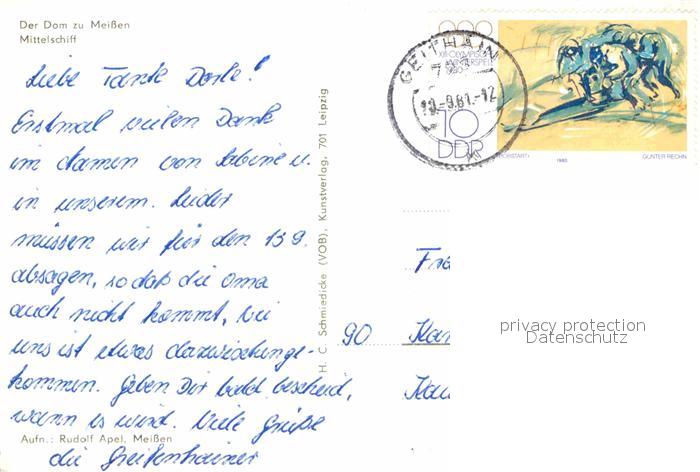 Der Dom zu Meißen
Mittelschiff
Liebe Tante Dorle!
Erstmal vielen Dank
im Namen von Sabine u.
in unserem. Leider
müssen wir für den 13.9.
absagen, so daß die Oma
auch nicht kommt, bei
uns ist etwas dazwischenge-
kommen. Geben Dir bald bescheid,
wann es wird. Viele Grüße
die Greifenhainer
Aufn.: Rudolf Apel, Meißen
H. C. Schmiedicke (VOB), Kunstverlag, 701 Leipzig
GEITHAIN
-9.81.-12
XIII. OLYMPISCHE
WINTERSPIELE
1980
10
DDR
1980
GÜNTER RECHN
Fra
90 Kar
privacy protection
Datenschutz